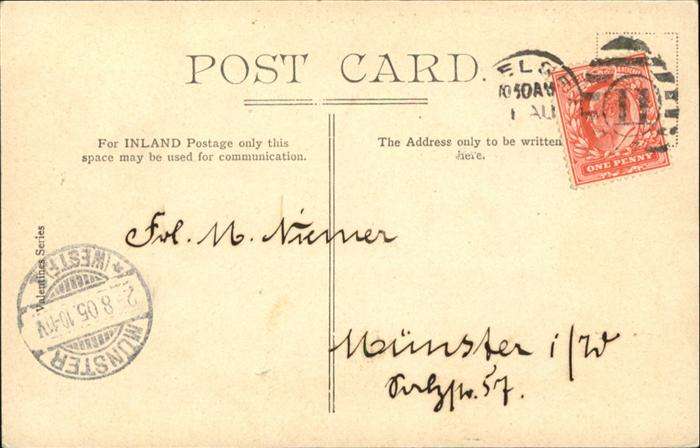 POST CARD.
ELG
10 40AM
AU
11
ONE PENNY
For INLAND Postage only this
space may be used for communication.
The Address only to be written
here.
Frl. M. Niemer
Valentines Series
MÜNSTER
(WESTF.)
2.8.05.10-11V
Münster i/W
57.